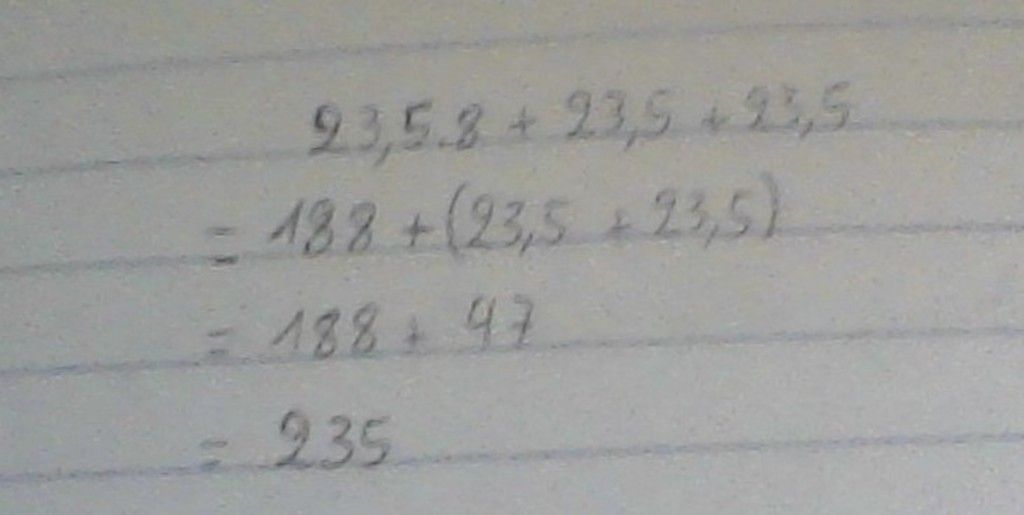 23,5.8 + 23,5 + 23,5
= 188 + (23,5 + 23,5)
= 188 + 47
= 235